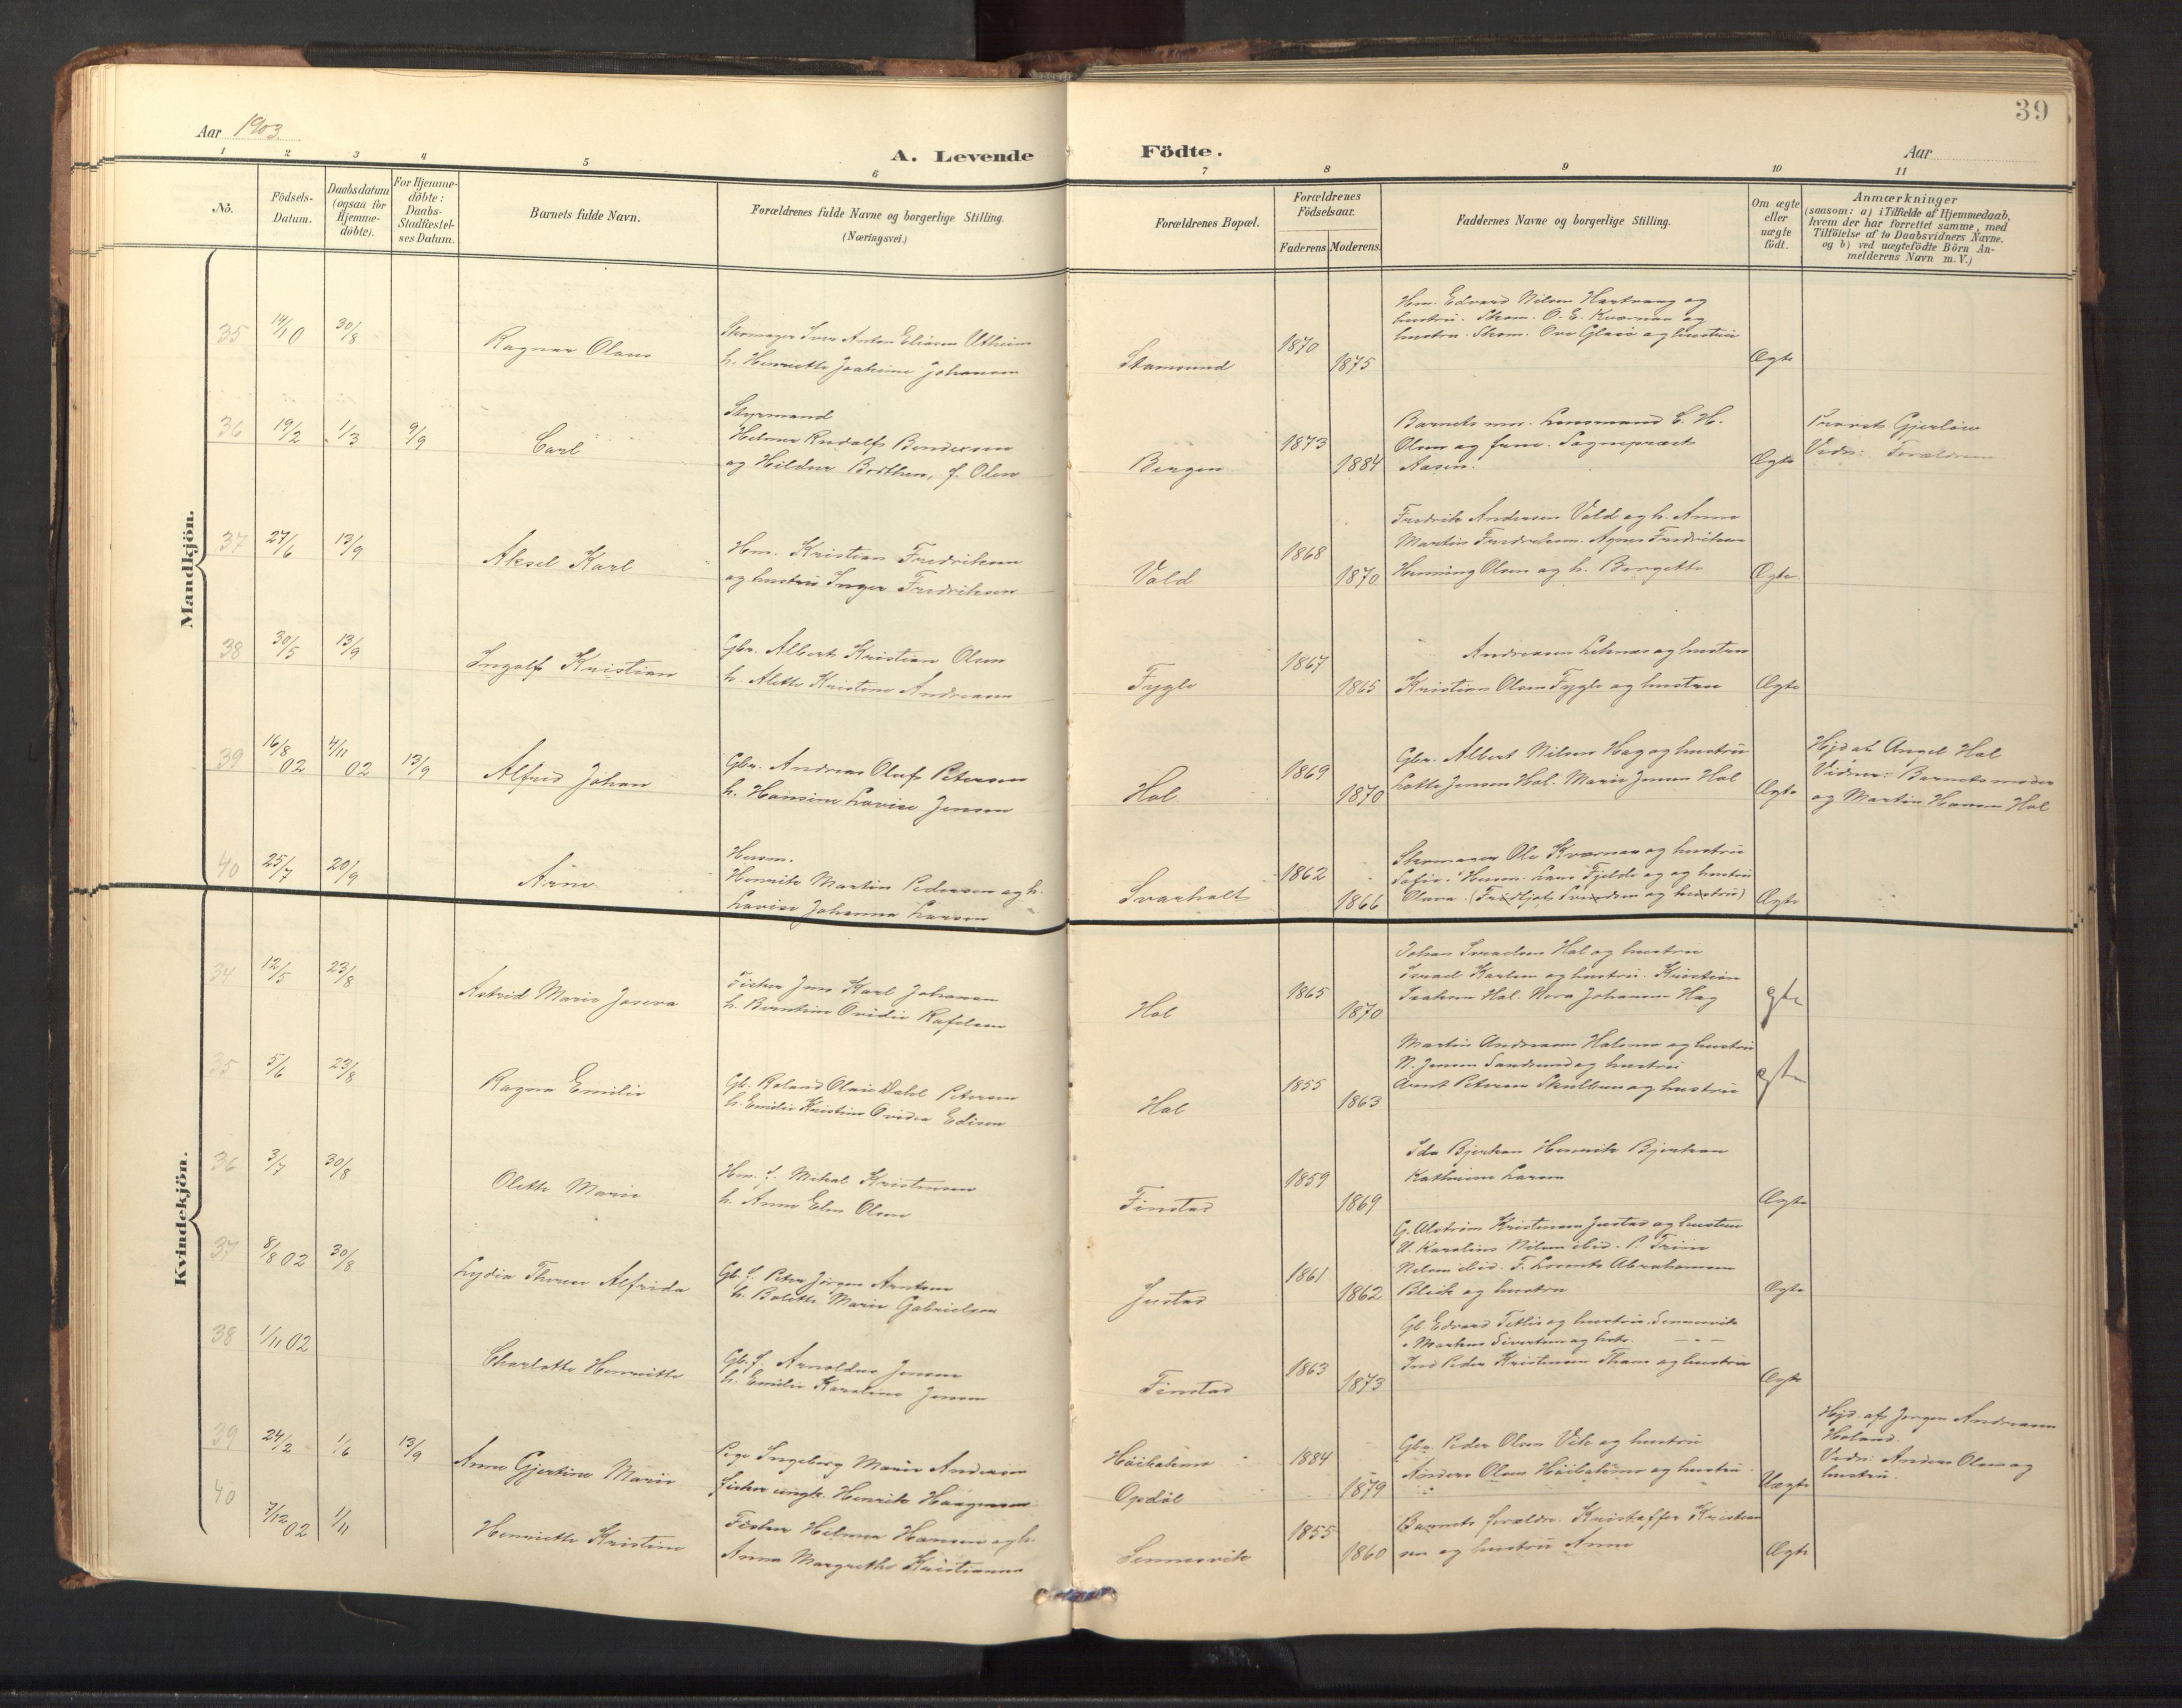 39
Aar 1903
A. Levende Födte.
Aar
1 2 3 4 5 6 7 8 9 10 11
No.
Födsels-
Datum.
Daabsdatum
(ogsaa for
Hjemme-
döbte).
For Hjemme-
döbte:
Daabs-
Stadfæstel-
ses Datum.
Barnets fulde Navn.
Forældrenes fulde Navne og borgerlige Stilling.
(Næringsvei.)
Forældrenes Bopæl.
Forældrenes
Födselsaar.
Faderens. Moderens.
Faddernes Navne og borgerlige Stilling.
Om ægte
eller
uægte
födt.
Anmærkninger
(saasom: a) i Tilfælde af Hjemmedaab,
hvem der har forrettet samme, med
Tilföielse af to Daabsvidners Navne.
og b) ved uægtefödte Börn An-
melderens Navn m. V.)
Mandkjön.
35 14/10 30/8
Ragnar Olaus
Skomager Iver Anton Eliasen Utheim
h. Henriette Johansen
Stamsund
1870
1875
Hm. Edvard Nilsen Hartvaag og
hustru. Skom. O. E. Kværnan og
hustru. Skom. Ove Glasö og hustru
Ægte
36 19/2 1/3 9/9
Carl
Styrmand
Helmer Rudolf Bendixsen
og Hildur Bothen, f. Olsen
Bergen
1873
1884
Barnets mor. Lensmand E. H.
Olsen og frue. Sogneprest
Aasen.
Ægte
Provst Gjerlöw
Vidn: Forældrene
37 27/6 13/9
Aksel Karl
Hm. Kristian Fredriksen
og hustru Inger Fredriksen
Vold
1868
1870
Fredrik Andersen Vold og h. Anne
Martin Fredriksen. Agnes Fredriksen
Henning Olsen og h. Bergette
Ægte.
38 30/5 13/9
Ingolf Kristian
Gbr. Albert Kristian Olsen
h. Alette Kristine Andreasen
Fygle
1867
1865
Andreasen Leknes og hustru
Kristian Olsen Fygle og hustru
Ægte
39 16/8 02 4/11 02 13/9
Alfred Johan
Gbr. Andreas Oluf Petersen
h. Hansine Lovise Jensen
Hol
1869
1870
Gbr. Albert Nilsen Hag og hustru
Lotte Jensen Hol. Marie Jensen Hol
Ægte
Hjd af Angel Hol
Vidner: Barnets moder
og Martin Hansen Hol
40 25/7 20/9
Arne
Husm.
Henrik Martin Pedersen og h.
Lovise Johanna Larsen
Svarholt
1862
1866
Skomager Ole Kværnan og hustru
Sofie. Husm. Lars Fjelde og hustru
Olava. (Fridtjof og hustru)
Ægte
Kvindekjön.
34 12/5 23/8
Astrid Marie Joseva
Fisker Jens Karl Johansen
h. Berntine Ovidie Rafelsen
Hol
1865
1870
Johan Israelsen Hol og hustru
Israel Karlsen og hustru. Kristian
Isaksen Hol. Nora Johansen Hag
gte
35 5/6 23/8
Ragna Emilie
Gb. Roland Olai Dahl Petersen
h. Emilie Kristine Ovidia Edisen
Hol
1855
1863
Martin Andreasen Holsmo og hustru
N. Jensen Sandsund og hustru
Arnt Petersen Skulbru og hustru
gte
36 3/7 30/8
Olette Marie
Hm. f. Mikal Kristensen
h. Anne Elen Olsen
Finstad
1859
1869
Ida Bjerkan Henrik Bjerkan
Kathrine Larsen
Ægte
37 8/8 02 30/8
Lydia Therese Alfrida
Gb. f. Peter Jörgen Arntsen
h. Bolette Marie Gabrielsen
Justad
1861
1862
G. Alström Kristensen Justad og hustru
U. Karolius Nilsen ibid. P. Trine
Nilsen ibid. F. Lorents Abrahamsen
Blich og hustru
Ægte
38 1/11 02
Charlotte Henriette
Gb. f. Arnoldus Jensen
h. Emilie Karoline Jensen
Finstad
1863
1873
Gb. Edvard Tetlie og hustru. Sennesvik
Markus Sivertsen og hust. — " —
Ind. Peder Kristensen Tham og hustru
Ægte
39 24/2 1/6 13/9
Anna Gjertine Marie
Pige Ingeborg Marie Andersen
fisker ungk. Henrik Haagensen
Höibakmo
Opdöl
1884
1879
Gbr. Peder Olsen Vik og hustru
Anders Olsen Höibakmo og hustru
Uægte
Hjd. af Jörgen Andreasen
Holand.
Vidn: Anders Olsen og
hustru.
40 7/12 02 1/11
Henriette Kristine
Fisker Helmer Hansen og h.
Anna Margrethe Kristiansen
Sennesvik
1855
1860
Barnets forældre. Kristoffer Kristian
sen og hustru Anne
Ægte